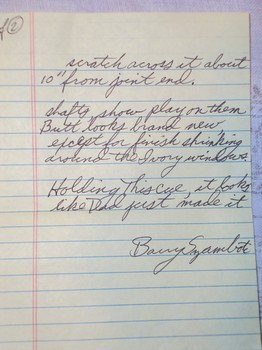 ②
scratch across it about
10" from joint end.
shafts show play on them
Butt looks brand new,
except for finish shrinking
around the Ivory windows.
Holding This Cue, it looks
like Dad just made it
Barry Szamboti